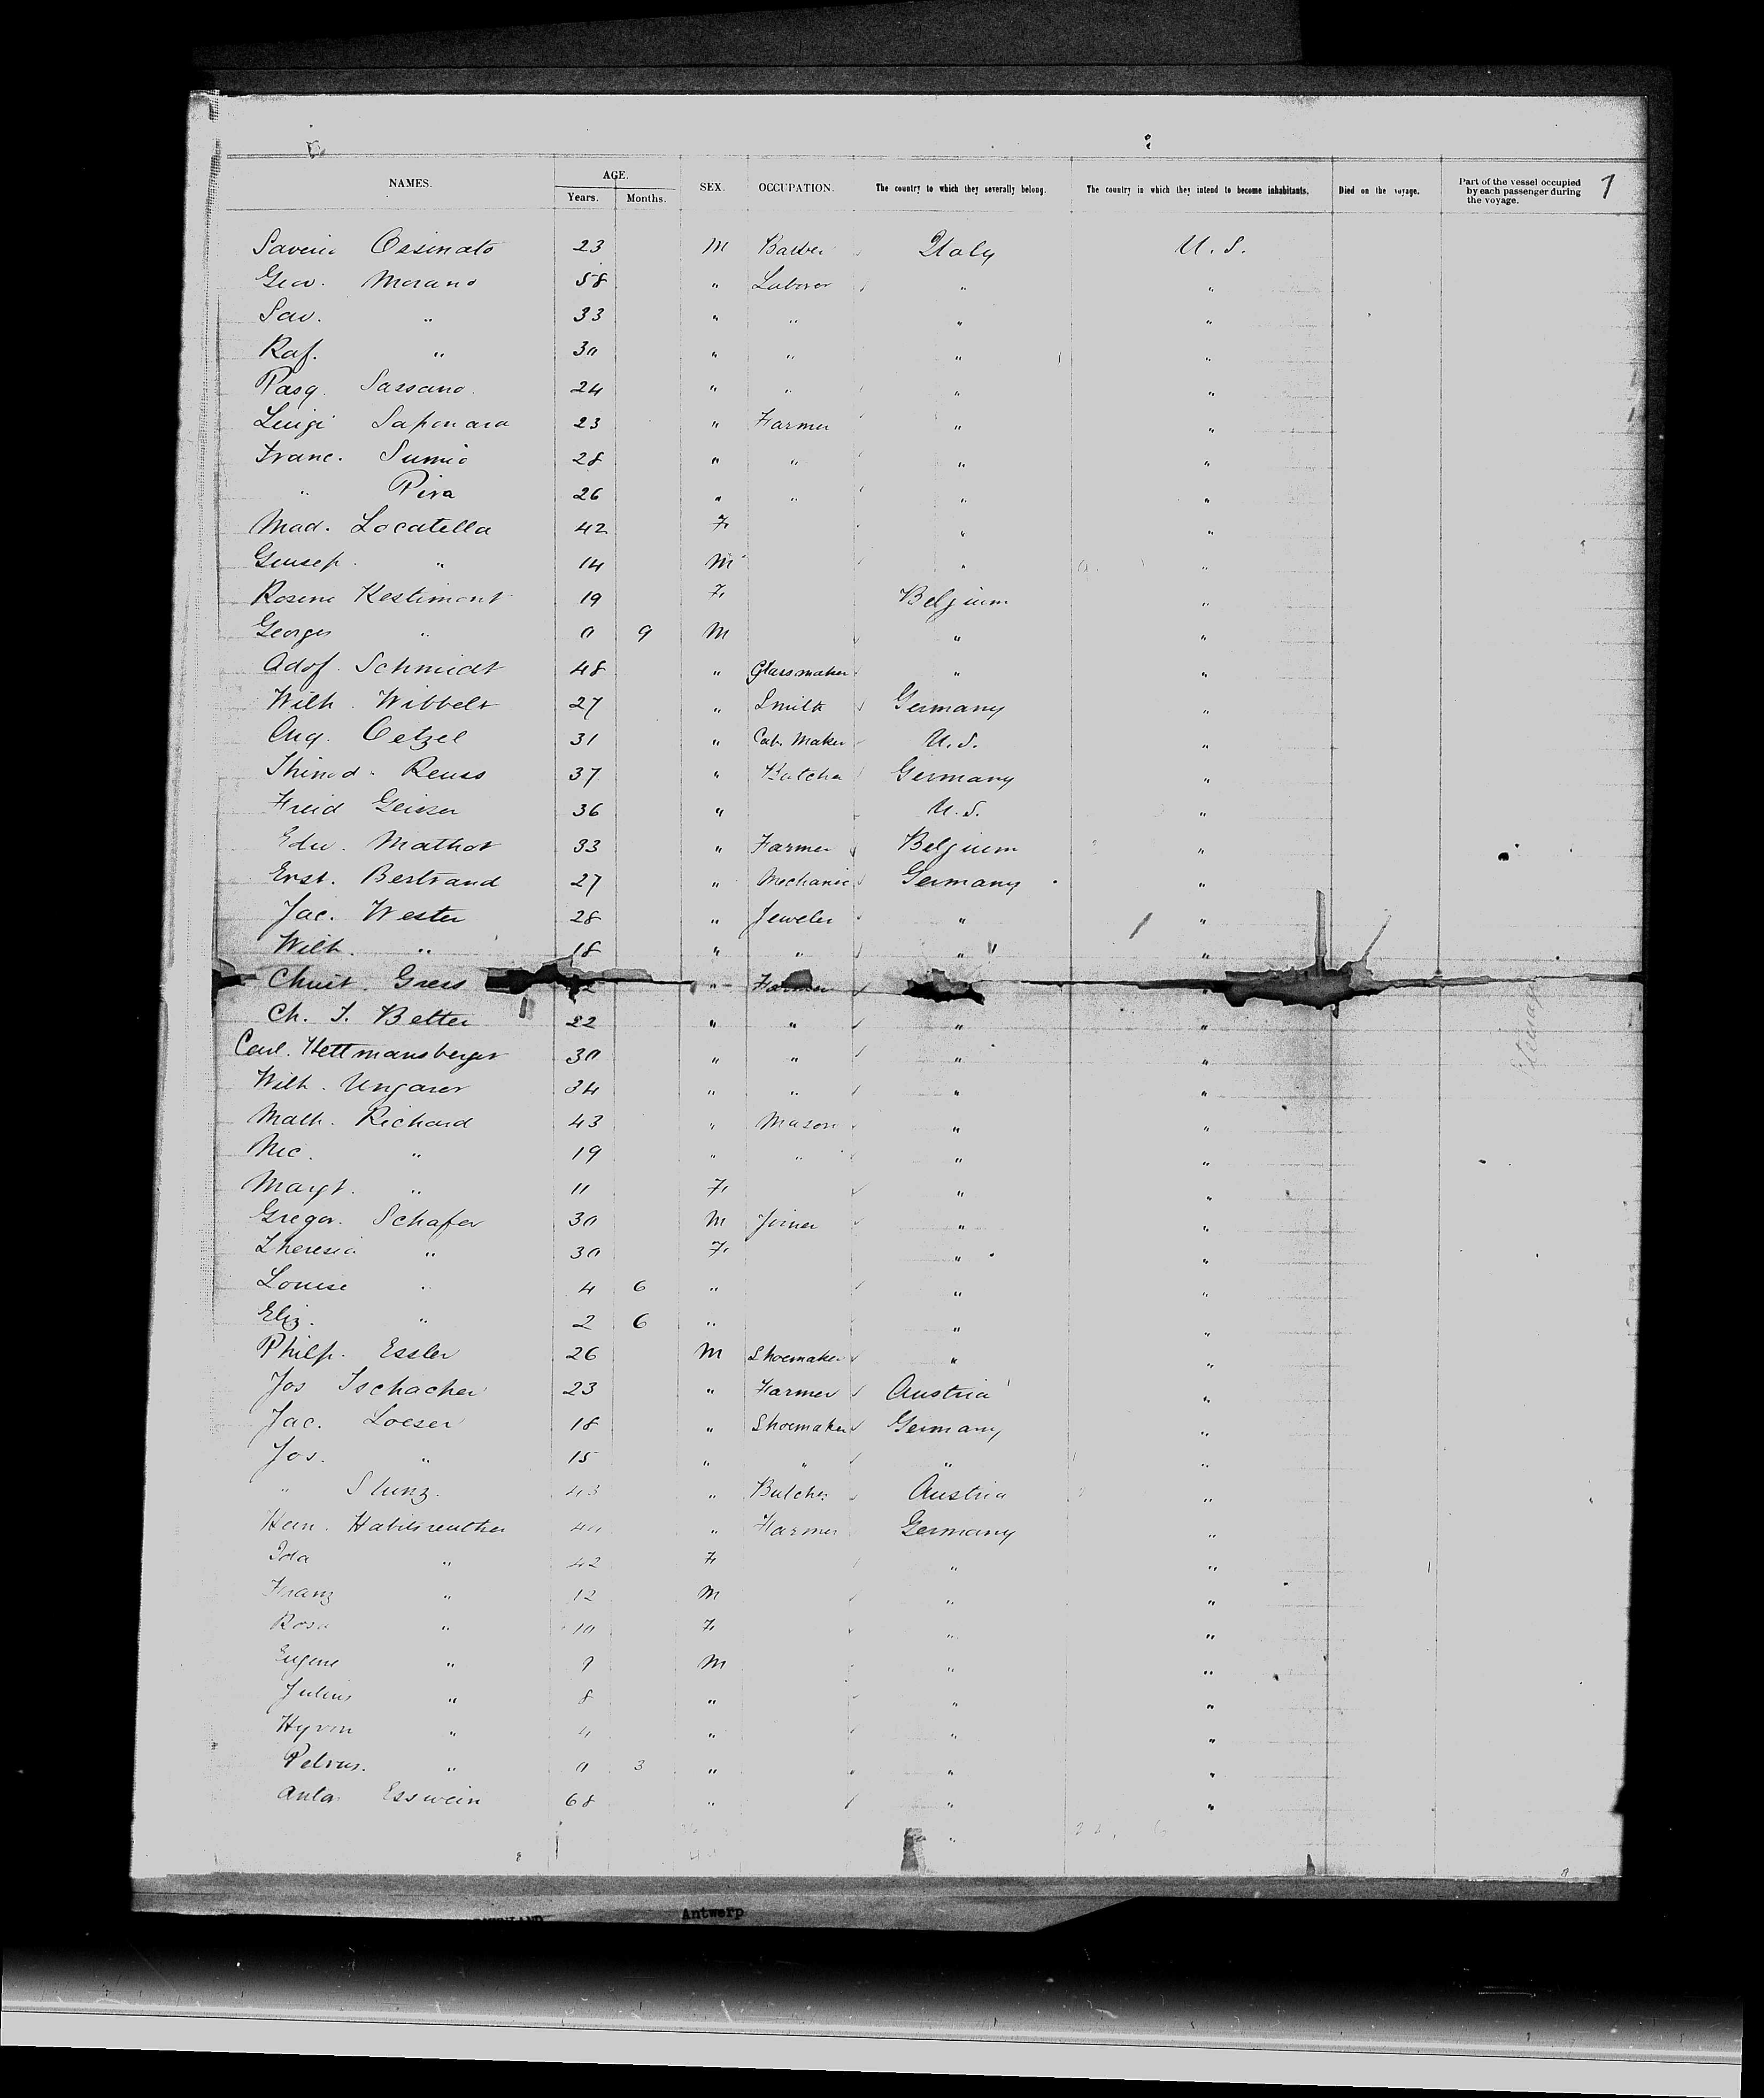 NAMES. AGE. SEX. OCCUPATION. The country to which they severally belong. The country in which they intend to become inhabitants. Died on the voyage. Part of the vessel occupied by each passenger during the voyage. 1
Years. Months.
Saverio Cesinato 23 M Barber Italy U.S.
Giov. Morano 58 " Laborer " "
Sav. " 33 " " " "
Raf. " 30 " " " "
Pasq. Sassano. 24 " " " "
Luigi Saponara 23 " Farmer " "
Franc. Sumio 28 " " " "
" Piva 26 " " " "
Mad. Locatella 42 F. " "
Giusep. " 14 M " "
Rosine Kestimont 19 F. Belgium "
Georges " 0 9 M " "
Adof. Schmidt 48 " Glassmaker " "
Wilh. Wibbelt 27 " Smith Germany "
Aug. Oetzel 31 " Cab. Maker U.S. "
Reuss 37 " Butcher Germany "
Geiser 36 " U.S. "
Edw. Mathot 33 " Farmer Belgium "
Erst. Bertrand 27 " Mechanic Germany "
Jac. Wester 28 " Jeweler " "
Wilh. " 18 " " " "
Christ. Gress " Farmer "
Ch. F. Better 22 " " " "
Carl. Hettmansberger 30 " " " "
Wilh. Ungarer 34 " " " "
Math. Richard 43 " Mason " "
Nic. " 19 " " " "
Margt. " 11 F. " "
Gregor. Schafer 30 M Joiner " "
Theresia " 30 F. " "
Louise " 4 6 " " "
Eliz. " 2 6 " " "
Philp. Essler 26 M Shoemaker " "
Jos Tschacher 23 " Farmer Austria "
Jac. Loeser 18 " Shoemaker Germany "
Jos. " 15 " " " "
" Stunz. 43 " Butcher Austria "
Hein. Habitsreuther 40 " Farmer Germany "
Ida " 42 F. " "
Franz " 12 M " "
Rosa " 10 F. " "
Eugene " 9 M " "
Julius " 8 " " "
Hyron " 4 " " "
Petrus. " 0 3 " " "
Anton Esswein 68 " " "
Steerage
Antwerp